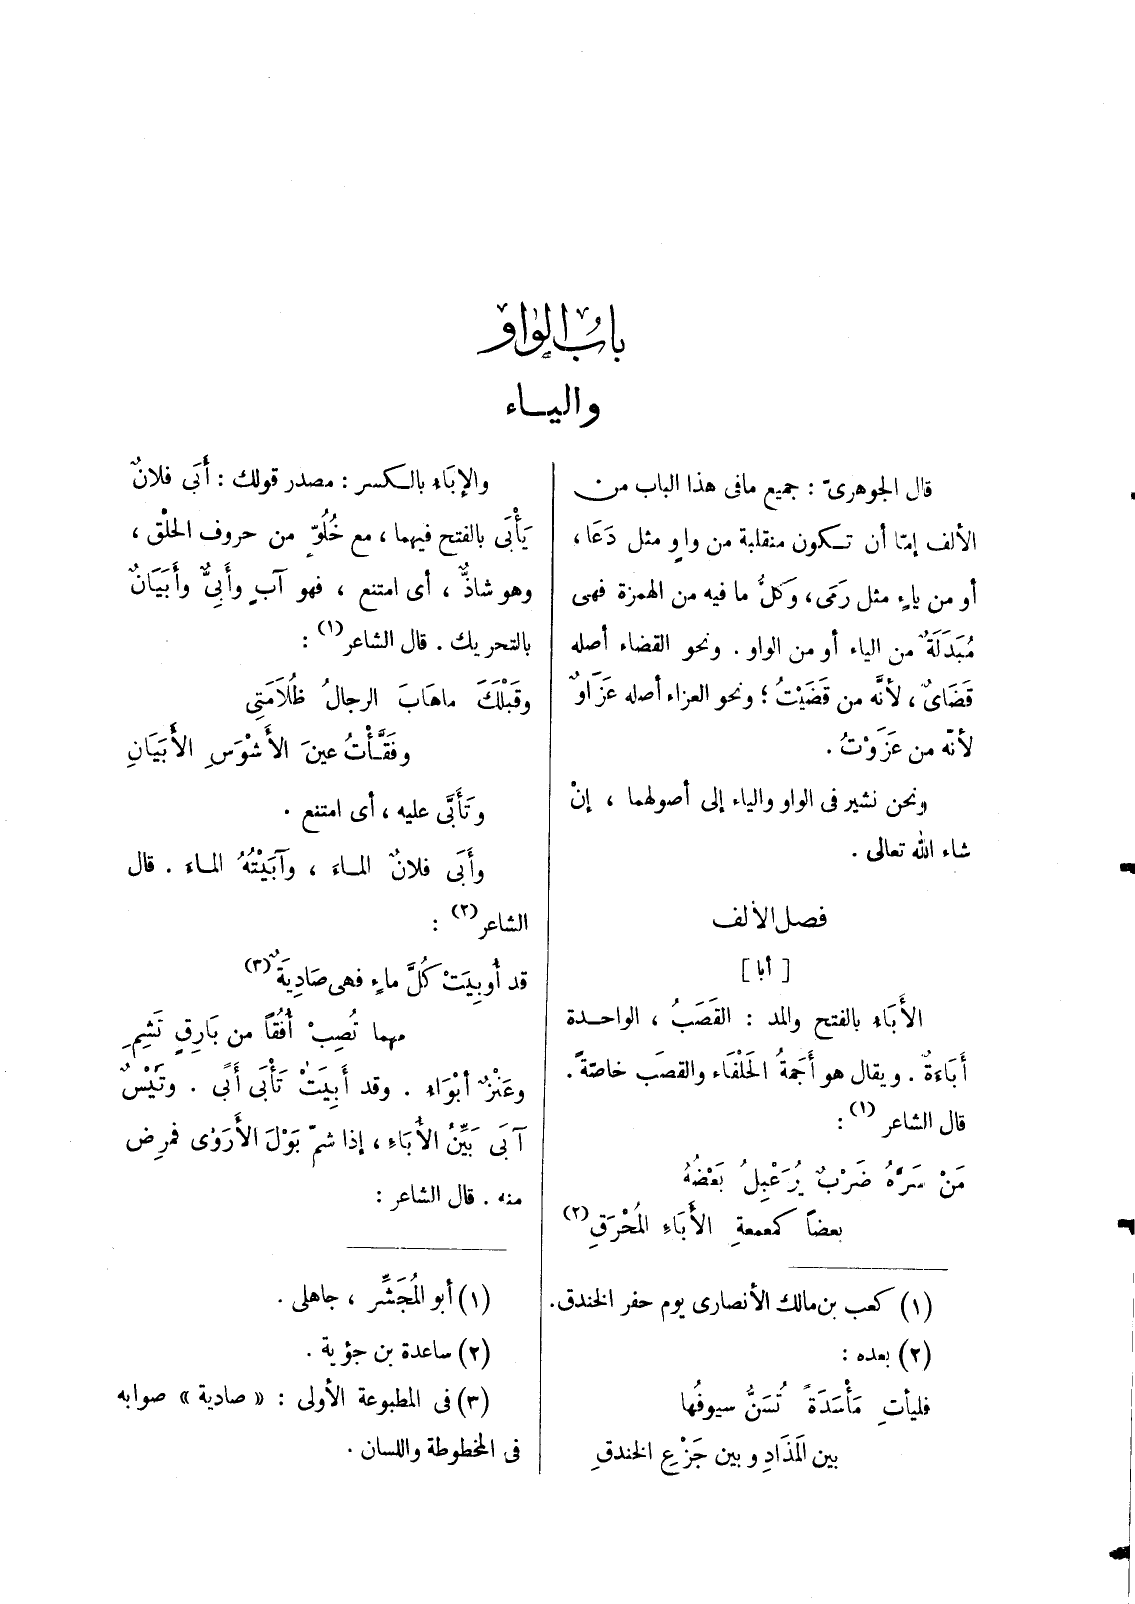 باب الواو
والياء
قال الجوهرىّ : جميع مافى هذا الباب من
الألف إمّا أن تكون منقلبة من واوٍ مثل دَعَا ،
أو من ياءٍ مثل رَمَى ، وَكلُّ ما فيه من الهمزة فهى
مُبَدَلَةٌ من الياء أو من الواو . ونحو القضاء أصله
قَضَاىٌ ، لأنَّه من قَضَيْتُ ؛ ونحو العزاء أصله عَزَاوٌ
لأنّه من عَزَوْتُ .
ونحن نشير فى الواو والياء إلى أصولهما ، إنْ
شاء الله تعالى .
فصل الألف
[ أبا ]
الأَبَاءُ بالفتح والمد : القَصَبُ ، الواحدة
أَبَاءَةٌ . ويقال هو أَجَمَةُ الحَلْفَاء والقصَب خاصّةً .
قال الشاعر (١) :
مَنْ سَرَّهُ ضَرْبٌ يُرَعْبِلُ بَعْضُهُ
بعضاً كمعمعةِ الأَبَاءِ المُحْرَقِ (٢)
(١) كعب بن مالك الأنصارى يوم حفر الخندق .
(٢) بعده :
فليأتِ مَأْسَدَةً تُسَنُّ سيوفُها
بين المَذَادِ وبين جَزْعِ الخندقِ
والإبَاءُ بالكسر : مصدر قولك : أَبَى فلانٌ
يَأْبَى بالفتح فيهما ، مع خُلُوِّ من حروف الحلْق ،
وهو شاذٌّ ، أى امتنع ، فهو آبٍ وأَبِىٌّ وأَبَيَانٌ
بالتحريك . قال الشاعر (١) :
وقَبْلَكَ ماهَابَ الرجالُ ظُلَامَتِى
وفَقَّأْتُ عينَ الأَشْوَسِ الأَبَيَانِ
وتَأَبَّى عليه ، أى امتنع .
وأَبَى فلانٌ الماءَ ، وآبَيْتُهُ الماءَ . قال
الشاعر (٢) :
قد أُوبِيَتْ كُلَّ ماءٍ فهى صَادِيَةٌ (٣)
مهما تُصِبْ أُفُقًا من بَارِقٍ تَشِمِ
وعَنْزٌ أَبْوَاءُ . وقد أَبِيَتْ تَأْبَى أَبًى . وتَيْسٌ
آبَى بَيِّنُ الأَبَاءِ ، إذا شمّ بَوْلَ الأَرْوَى فمرِض
منه . قال الشاعر :
(١) أبو المُجَشِّر ، جاهلى .
(٢) ساعدة بن جؤية .
(٣) فى المطبوعة الأولى : « صادية » صوابه
فى المخطوطة واللسان .